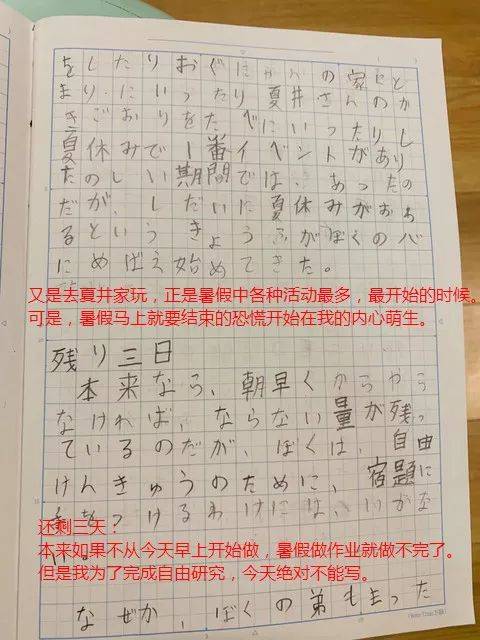 をしたりおぐにかんの家にと
まりにいったり夏井さんのか
き氷ごおりをたべにいったりし
夏休みで一番イベントがあり
たのしい期間では、あったの
だが、しだいに夏休みがおわ
るというきょうふがぼくの心
にめばえ始めてきた。
又是去夏井家玩，正是暑假中各种活动最多，最开始的时候。
可是，暑假马上就要结束的恐慌开始在我的内心萌生。
残り三日
本来なら、朝早くからやら
なければ、ならない量が残っ
ているのだが、ぼくは、自由
けんきゅうのために、宿題に
手をつけるわけには、いかな
还剩三天：
本来如果不从今天早上开始做，暑假做作业就做不完了。
但是我为了完成自由研究，今天绝对不能写。
なぜか、ぼくの弟もまった